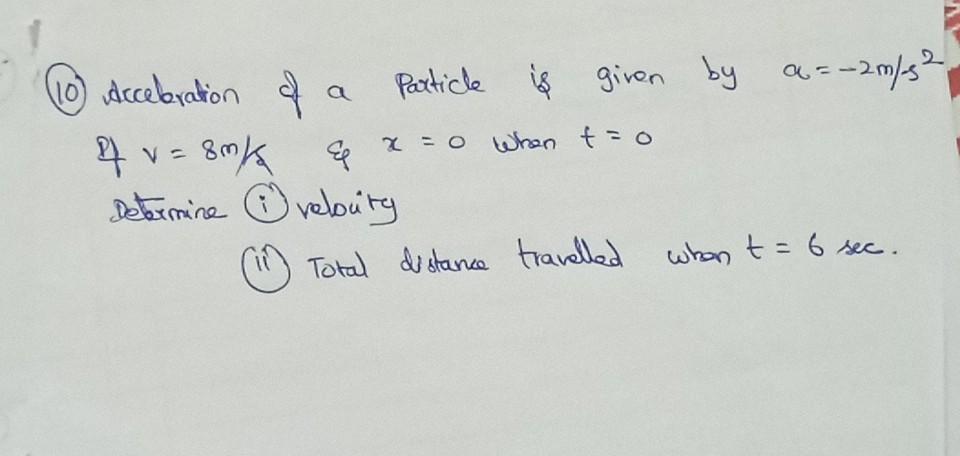 10 Acceleration of a Particle is given by a = -2m/s²
If v = 8m/s & x = 0 when t = 0
Determine i velocity
ii Total distance travelled when t = 6 sec.